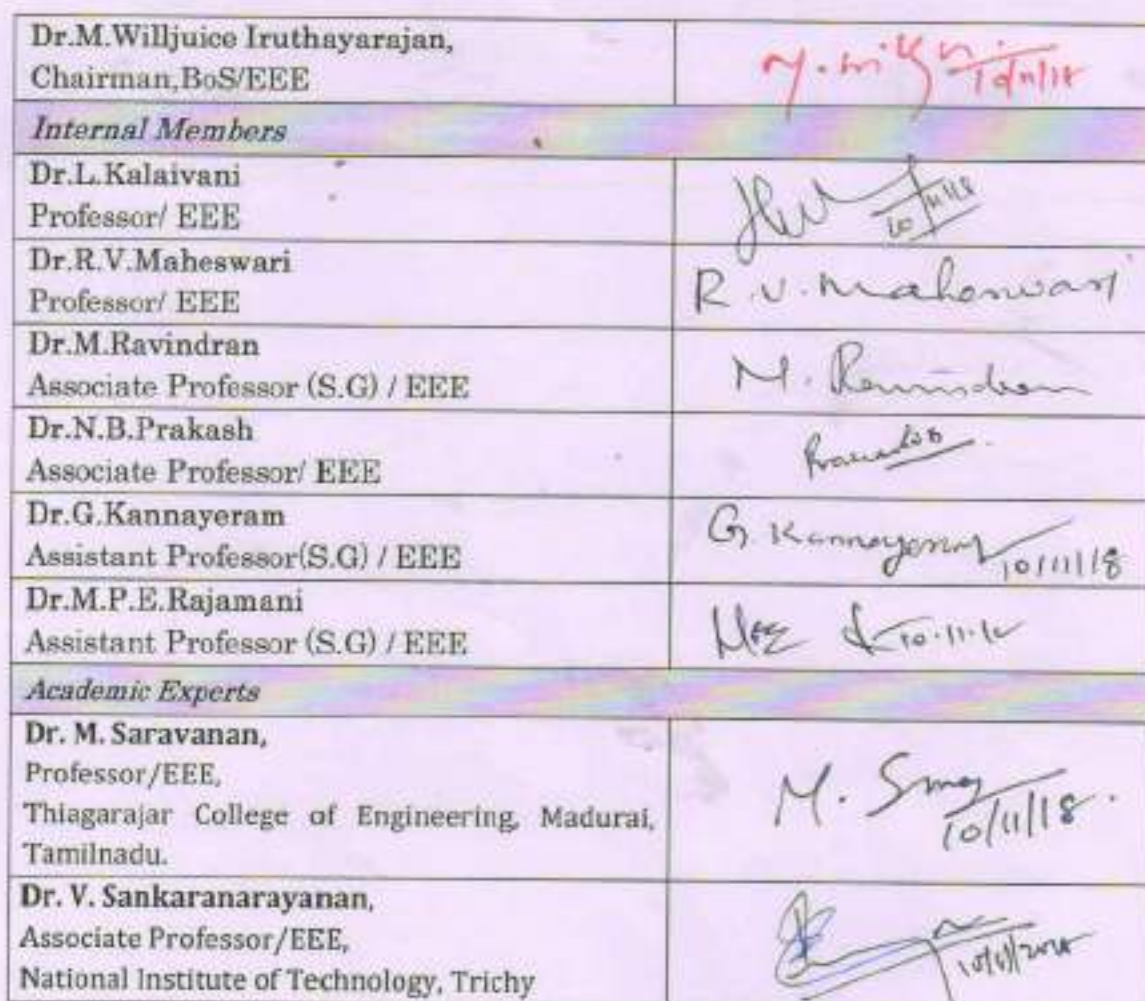 Dr.M.Willjuice Iruthayarajan,
Chairman,BoS/EEE
Internal Members
Dr.L.Kalaivani
Professor/ EEE
10/11/18
Dr.R.V.Maheswari
Professor/ EEE
R.V.Maheswari
Dr.M.Ravindran
Associate Professor (S.G) / EEE
M. Ravindran
Dr.N.B.Prakash
Associate Professor/ EEE
Dr.G.Kannayeram
Assistant Professor(S.G) / EEE
G. Kannayeram
10/11/18
Dr.M.P.E.Rajamani
Assistant Professor (S.G) / EEE
Academic Experts
Dr. M. Saravanan,
Professor/EEE,
Thiagarajar College of Engineering, Madurai,
Tamilnadu.
M.
10/11/18.
Dr. V. Sankaranarayanan,
Associate Professor/EEE,
National Institute of Technology, Trichy
10/11/2018